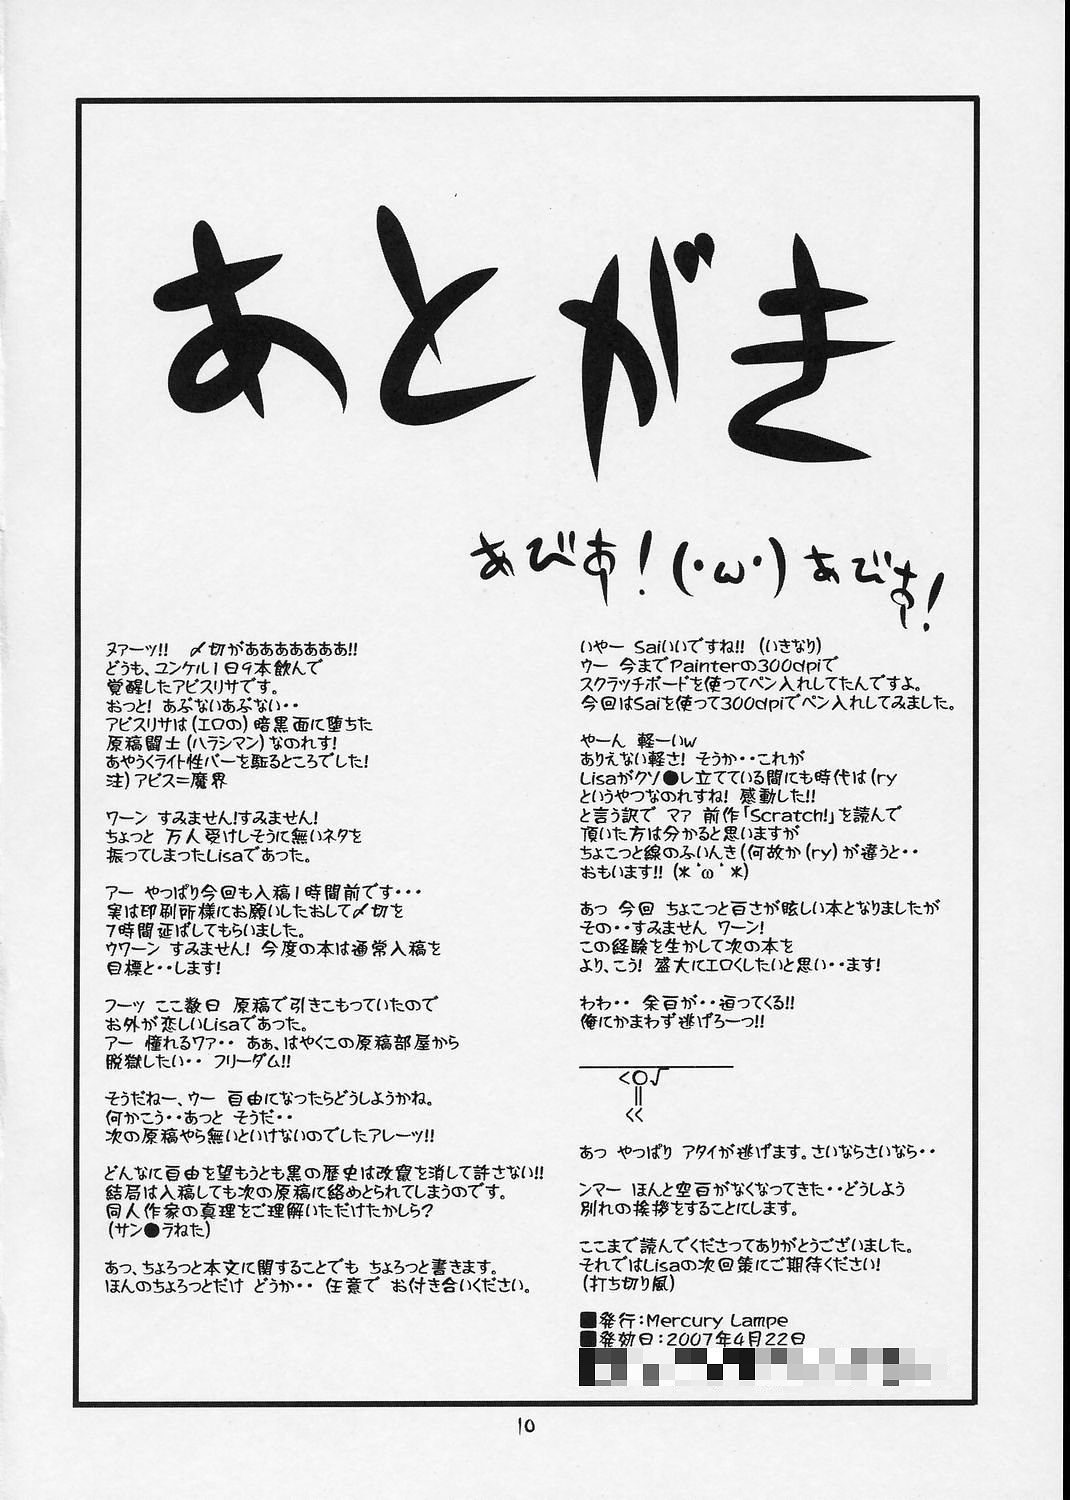 あとがき
あびす！(・ω・)あびす！
ヌァーッ!!　〆切がああああああ!!
どうも、ユンケル1日9本飲んで
覚醒したアビスリサです。
おっと！あぶないあぶない・・
アビスリサは(エロの)暗黒面に堕ちた
原稿闘士(ハラシマン)なのれす！
あやうくライト性バーを駈るところでした！
注)アビス＝魔界
ワーン すみません！すみません！
ちょっと 万人受けしそうに無いネタを
振ってしまったLisaであった。
アー やっぱり今回も入稿1時間前です・・・
実は印刷所様にお願いしたおして〆切を
7時間延ばしてもらいました。
ウワーン すみません！今度の本は通常入稿を
目標と・・します！
フーッ ここ数日 原稿で引きこもっていたので
お外が恋しいLisaであった。
アー 憧れるワァ・・ あぁ、はやくこの原稿部屋から
脱獄したい・・ フリーダム!!
そうだねー、ウー 自由になったらどうしようかね。
何かこう・・あっと そうだ・・
次の原稿やら無いといけないのでしたアレーッ!!
どんなに自由を望もうとも黒の歴史は改竄を消して許さない!!
結局は入稿しても次の原稿に絡めとられてしまうのです。
同人作家の真理をご理解いただけたかしら？
(サン●ラねた)
あっ、ちょろっと本文に関することでも ちょろっと書きます。
ほんのちょろっとだけ どうか・・ 任意で お付き合いください。
いやー Saiいいですね!! (いきなり)
ウー 今までPainterの300dpiで
スクラッチボードを使ってペン入れしてたんですよ。
今回はSaiを使って300dpiでペン入れしてみました。
やーん 軽ーいw
ありえない軽さ！そうか・・これが
Lisaがクソ●レ立てている間にも時代は(ry
というやつなのれすね！感動した!!
と言う訳で マァ 前作「Scratch!」を読んで
頂いた方は分かると思いますが
ちょこっと線のふいんき(何故か(ry)が違うと・・
おもいます!! (*´ω`*)
あっ 今回 ちょこっと白さが眩しい本となりましたが
その・・すみません ワーン！
この経験を生かして次の本を
より、こう！盛大にエロくしたいと思い・・ます！
わわ・・ 余白が・・迫ってくる!!
俺にかまわず逃げろーっ!!
<○√
‖
<<
あっ やっぱり アタイが逃げます。さいならさいなら・・
ンマー ほんと空白がなくなってきた・・どうしよう
別れの挨拶をすることにします。
ここまで読んでくださってありがとうございました。
それではLisaの次回策にご期待ください！
(打ち切り風)
■発行：Mercury Lampe
■発効日：2007年4月22日
10